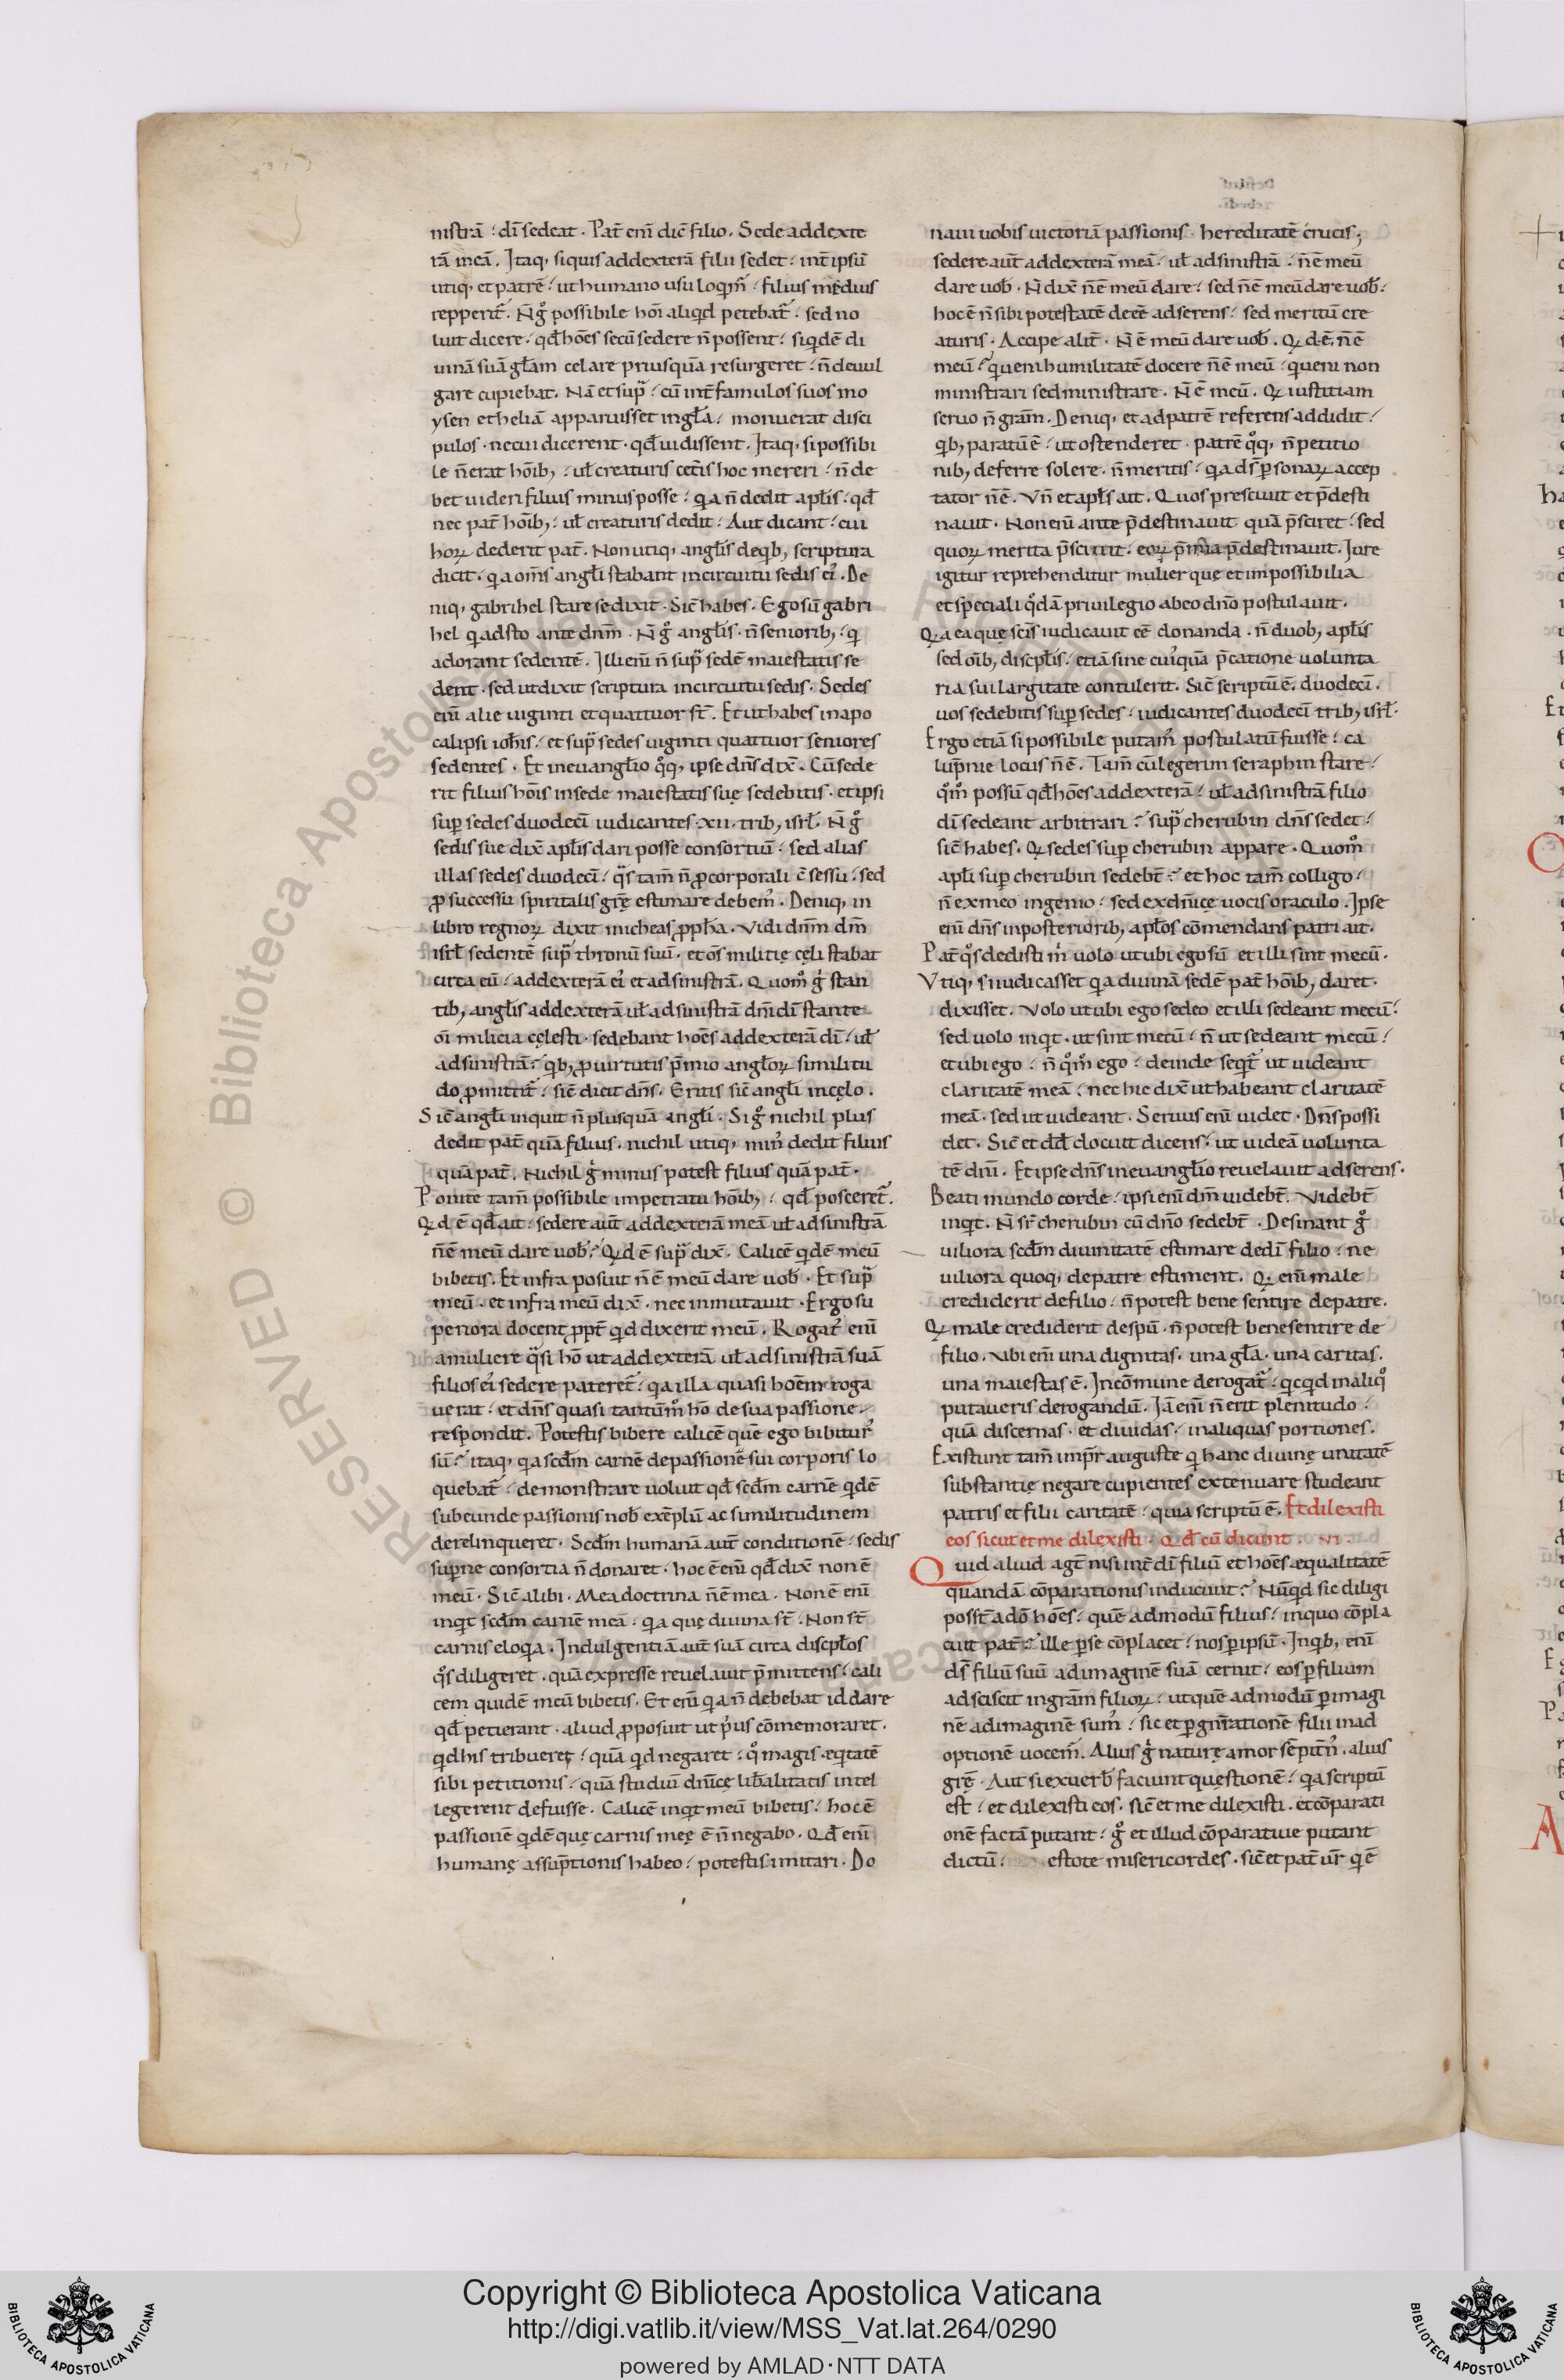 nistrã : dĩ sedeat . Pat̃ enĩ dic̃ filio . Sede addexte
rã meã . Itaq, siquis addexterã filii sedet : int̃ ipsũ
utiq, et patrẽ : ut humano usu loqm̃ : filius medius
repperit̃ . Ñ gͦ possibile hoĩ aliqd petebat̃ : sed no
luit dicere : qđ hões secũ sedere ñ possent : siqdẽ di
uinã suã gl̃am celare priusquã resurgeret : ñ deuul
gare cupiebat . Nã et sup̃ : cũ int̃ famulos suos mo
ysen et heliã apparuisset in gl̃a : monuerat disci
pulos . necui dicerent . qđ uidissent . Itaq, si possibi
le ñ erat hõib, : ul̃ creaturis cet̃is hoc mereri : ñ de
bet uideri filius minus posse : qa ñ dedit apl̃is : qđ
nec pat̃ hõib, : ul̃ creaturis dedit : Aut dicant : cui
hoꝝ dederit pat̃ . Non utiq, angl̃is de qb, scriptura
dicit . qa om̃s angl̃i stabant in circuitu sedis ei᾽ . De
niq, gabrihel stare se dixit . Sic̃ habes . Ego sũ gabri
hel qadsto ante dnm̃ . Ñ gͦ angl̃is . ñ seniorib, : q
adorant sedentẽ . Illi enĩ ñ sup̃ sedẽ maiestatis se
dent . sed ut dixit scriptura in circuitu sedis . Sedes
enĩ alie uiginti et quattuor st̃ . Et ut habes in apo
calipsi ioh̃is : et sup̃ sedes uiginti quattuor seniores
sedentes . Et in euangl̃io qͦq, ipse dñs dix̃ . Cũ sede
rit filius hõis in sede maiestatis suę sedebitis . et ipsi
suꝑ sedes duodecĩ iudicantes .xii. trib, isrl̃ . Ñ gͦ
sedis sue dix̃ apl̃is dari posse consortiũ : sed alias
illas sedes duodecĩ : qͣs tam̃ ñ ꝓ corporali c̃sessu : sed
ꝓ successu spiritalis grẽ estimare debem᾽ . Deniq, in
libro regnoꝝ dixit micheas ꝓpħa . Vidi dnm̃ dm̃
isrl̃ sedentẽ sup̃ thronũ suũ . et om̃s militię cęli stabat
circa eũ : addexterã ei᾽ et ad sinistrã . Quomͦ gͥ stan
tib, angl̃is addexterã ul̃ ad sinistrã dñi dĩ stante
oĩ milicia cęlesti . sedebant hões addexterã dĩ : ul̃
ad sinistrã ? qb, ꝓ uirtutis p̃mio angl̃oꝝ similitu
do ꝓmittit̃ : sic̃ dicit dñs . Eritis sic̃ angl̃i in cęlo .
Sic̃ angl̃i inquit ñ plusquã angl̃i . Si gͦ nichil plus
dedit pat̃ quã filius . nichil utiq, min᾽ dedit filius
quã pat̃ . Nichil gͥ minus potest filius quã pat̃ .
Ponite tam̃ possibile impetratu hõib, : qđ posceret̃ .
Qd ẽ qđ ait : sedere aũt addexterã meã ul̃ ad sinistrã
ñ ẽ meũ dare uob̃ ? Qd ẽ sup̃ dix̃ . Calicẽ qdẽ meũ
bibetis . Et infra posuit ñ ẽ meũ dare uob̃ . Et sup̃
meũ . et infra meũ dix̃ . nec inmutauit . Ergo su
periora docent ꝓpt̃ qd dixerit meũ . Rogat᾽ enĩ
a muliere qͣsi hõ ut addexterã ul̃ ad sinistrã suã
filios ei᾽ sedere pateret̃ : qa illa quasi hoẽm roga
uerat : et dñs quasi tantũmͦ hõ de sua passione .
respondit . Potestis bibere calicẽ quẽ ego bibitur᾽
sũ ? itaq, qa scdm̃ carnẽ de passionẽ sui corporis lo
quebat̃ : demonstrare uoluit qđ scdm̃ carnẽ qdẽ
subeunde passionis nob̃ exẽplũ ac similitudinem
derelinqueret . Scdm̃ humanã aũt conditionẽ : sedis
supernę consortia ñ donaret : hoc ẽ enĩ qđ dix̃ non ẽ
meũ . Sic̃ alibi . Mea doctrina ñ ẽ mea . Non ẽ enĩ
inqt scdm̃ carnẽ meã . qa quę diuina st̃ . Non st̃
carnis eloqa . Indulgentiã aũt suã circa discpl̃os
qͦs diligeret . quã expresse reuelauit p̃mittens : cali
cem quidẽ meũ bibetis . Et enĩ qa ñ debebat id dare
qđ petierant . aliud ꝓposuit ut p̃us cõmemoraret .
qd his tribueret : quã qd negaret : qͦ magis æqtatẽ
sibi petitionis : quã studiũ dñicę lib̃alitatis intel
legerent defuisse . Calicẽ inqt meũ bibetis : hoc ẽ
passionẽ qdẽ quę carnis meę ẽ ñ negabo . Qđ enĩ
humanę assup̃tionis habeo : potestis imitari . Do
naui uobis uictoriã passionis . hereditatẽ crucis ;
sedere aũt addexterã meã : ul̃ ad sinistrã : ñ ẽ meũ
dare uob̃ . Ñ dix̃ ñ ẽ meũ dare : sed ñ ẽ meũ dare uob̃ :
hoc ẽ ñ sibi potestatẽ deẽe adserens : sed meritũ cre
aturis . Accipe alit̃ . Ñ ẽ meũ dare uob̃ . Qd ẽ . ñ ẽ
meũ ? q ueni humilitatẽ docere ñ ẽ meũ : q ueni non
ministrari sed ministrare . Ñ ẽ meũ . Qꝝ iustitiam
seruo ñ gram̃ . Deniq, et ad patrẽ referens addidit :
qb, paratũ ẽ : ut ostenderet . patrẽ qͦq, ñ petitio
nib, deferre solere . ñ meritis : qa ds̃ ꝑsonaꝝ accep
tator ñ ẽ . Vñ et apl̃s ait . Quos presciuit et p̃desti
nauit . Non enĩ ante p̃destinauit quã p̃sciret : sed
quoꝝ merita p̃sciuit : eoꝝ p̃mia p̃destinauit . Iure
igitur reprehenditur mulier quę et impossibilia
et speciali qͦdã priuilegio ab eo dño postulauit .
Qa ea quę scĩs iudicauit eẽ donanda . ñ duob, apl̃is
sed oĩb, discpl̃is : etiã sine cui᾽quã p̃catione uolunta
ria sui largitate contulerit . Sic̃ scriptũ ẽ . duodecĩ .
uos sedebitis suꝑ sedes : iudicantes duodecĩ trib, isrl̃ .
Ergo etiã si possibile putam᾽ postulatũ fuisse : ca
lup̃nie locus ñ ẽ . Tam̃ cũ legerim seraphin stare :
qͦmͦ possũ qđ hões addexterã : ul̃ ad sinistrã filio
dĩ sedeant arbitrari ? sup̃ cherubin dñs sedet :
sic̃ habes . Qꝝ sedes suꝑ cherubin appare . Quomͦ
apl̃i suꝑ cherubin sedebt̃ ? et hoc tam̃ colligo :
ñ ex meo ingenio : sed ex dñicę uocis oraculo . Ipse
enĩ dñs in posteriorib, apl̃os cõmendans patri ait .
Pat̃ qͦs dedisti m̃ uolo ut ubi ego sũ et illi sint mecũ .
Vtiq, si iudicasset qa diuinã sedẽ pat̃ hõib, daret .
dixisset . Volo ut ubi ego sedeo et illi sedeant mecũ :
sed uolo inqt . ut sint mecũ : ñ ut sedeant mecũ :
et ubi ego : ñ qͦmͦ ego : deinde seqt̃ ut uideant
claritatẽ meã : nec hic dix̃ ut habeant claritatẽ
meã . sed ut uideant . Seruus enĩ uidet . Dñs possi
det . Sic̃ et dd̃ docuit dicens : ut uideã uolunta
tẽ dñi . Et ipse dñs in euangl̃io reuelauit adserens .
Beati mundo corde : ipsi enĩ dm̃ uidebt̃ . Videbt̃
inqt . Ñ sr̃ cherubin cũ dño sedebt̃ . Desinant gͦ
uiliora scdm̃ diuinitatẽ estimare de dĩ filio : ne
uiliora quoq, de patre estiment . Q enĩ male
crediderit de filio : ñ potest bene sentire de patre .
Q male crediderit de spũ . ñ potest bene sentire de
filio . Vbi enĩ una dignitas . una gl̃a . una caritas .
una maiestas ẽ . In cõmune derogat̃ : qcqd in aliqͦ
putaueris derogandũ . Iã enĩ ñ erit plenitudo :
quã discernas . et diuidas : in aliquas portiones .
Existunt tam̃ impr̃ auguste q hanc diuinę unitatẽ
substantię negare cupientes extenuare studeant
patris et filii caritatẽ : quia scriptũ ẽ . Et dilexisti
eos sicut et me dilexisti . Qđ cũ dicunt . VI .
Quid aliud agt̃ nisi int̃ dĩ filiũ et hões æqualitatẽ
quandã cõparationis inducunt ? Nũqd sic diligi
posst̃ a dõ hões : quẽ admodũ filius : in quo cõpla
cuit pat̃ ? ille ꝑ se cõplacet : nos ꝑ ipsũ . In qb, enĩ
ds̃ filiũ suũ ad imaginẽ suã cernit : eos ꝑ filium
adsciscit in gram̃ filioꝝ : ut quẽ admodũ ꝑ imagi
nẽ ad imaginẽ sum᾽ : sic et ꝑ gñrationẽ filii in ad
optionẽ uocem᾽ . Alius gͥ naturę amor sẽpitñ᾽ . alius
grę̃ . Aut si ex uerb̃ faciunt questionẽ : qa scriptũ
est : et dilexisti eos . sic̃ et me dilexisti . et cõparati
onẽ factã putant : gͦ et illud cõparatiue putant
dictũ : estote misericordes . sic̃ et pat̃ ur̃ q ẽ
Copyright © Biblioteca Apostolica Vaticana
http://digi.vatlib.it/view/MSS_Vat.lat.264/0290
powered by AMLAD·NTT DATA